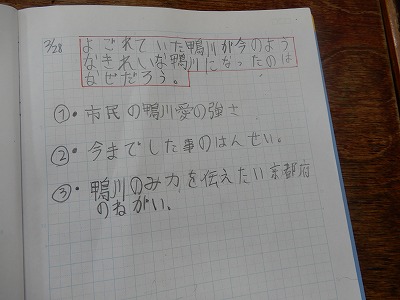 2/28
よごれていた鴨川が今のよう
なきれいな鴨川になったのは
なぜだろう。
①・市民の鴨川愛の強さ
②・今までした事のはんせい。
③・鴨川のみ力を伝えたい京都府
のねがい。